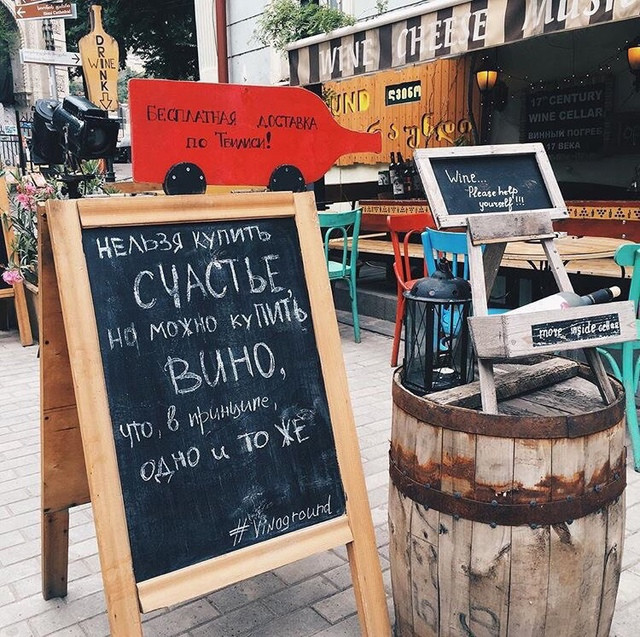 DRINK
WINE
WINE CHEESE MUSI
БЕСПЛАТНАЯ ДОСТАВКА
ПО ТБИЛИСИ!
UND
ღვინო
17TH CENTURY
WINE CELLAR
ВИННЫЙ ПОГРЕБ
17 ВЕКА
Wine...
Please help
yourself!!!
more inside cellar
НЕЛЬЗЯ КУПИТЬ
СЧАСТЬЕ,
НО МОЖНО КУПИТЬ
ВИНО,
ЧТО, В ПРИНЦИПЕ,
ОДНО И ТО ЖЕ
#Vinoground